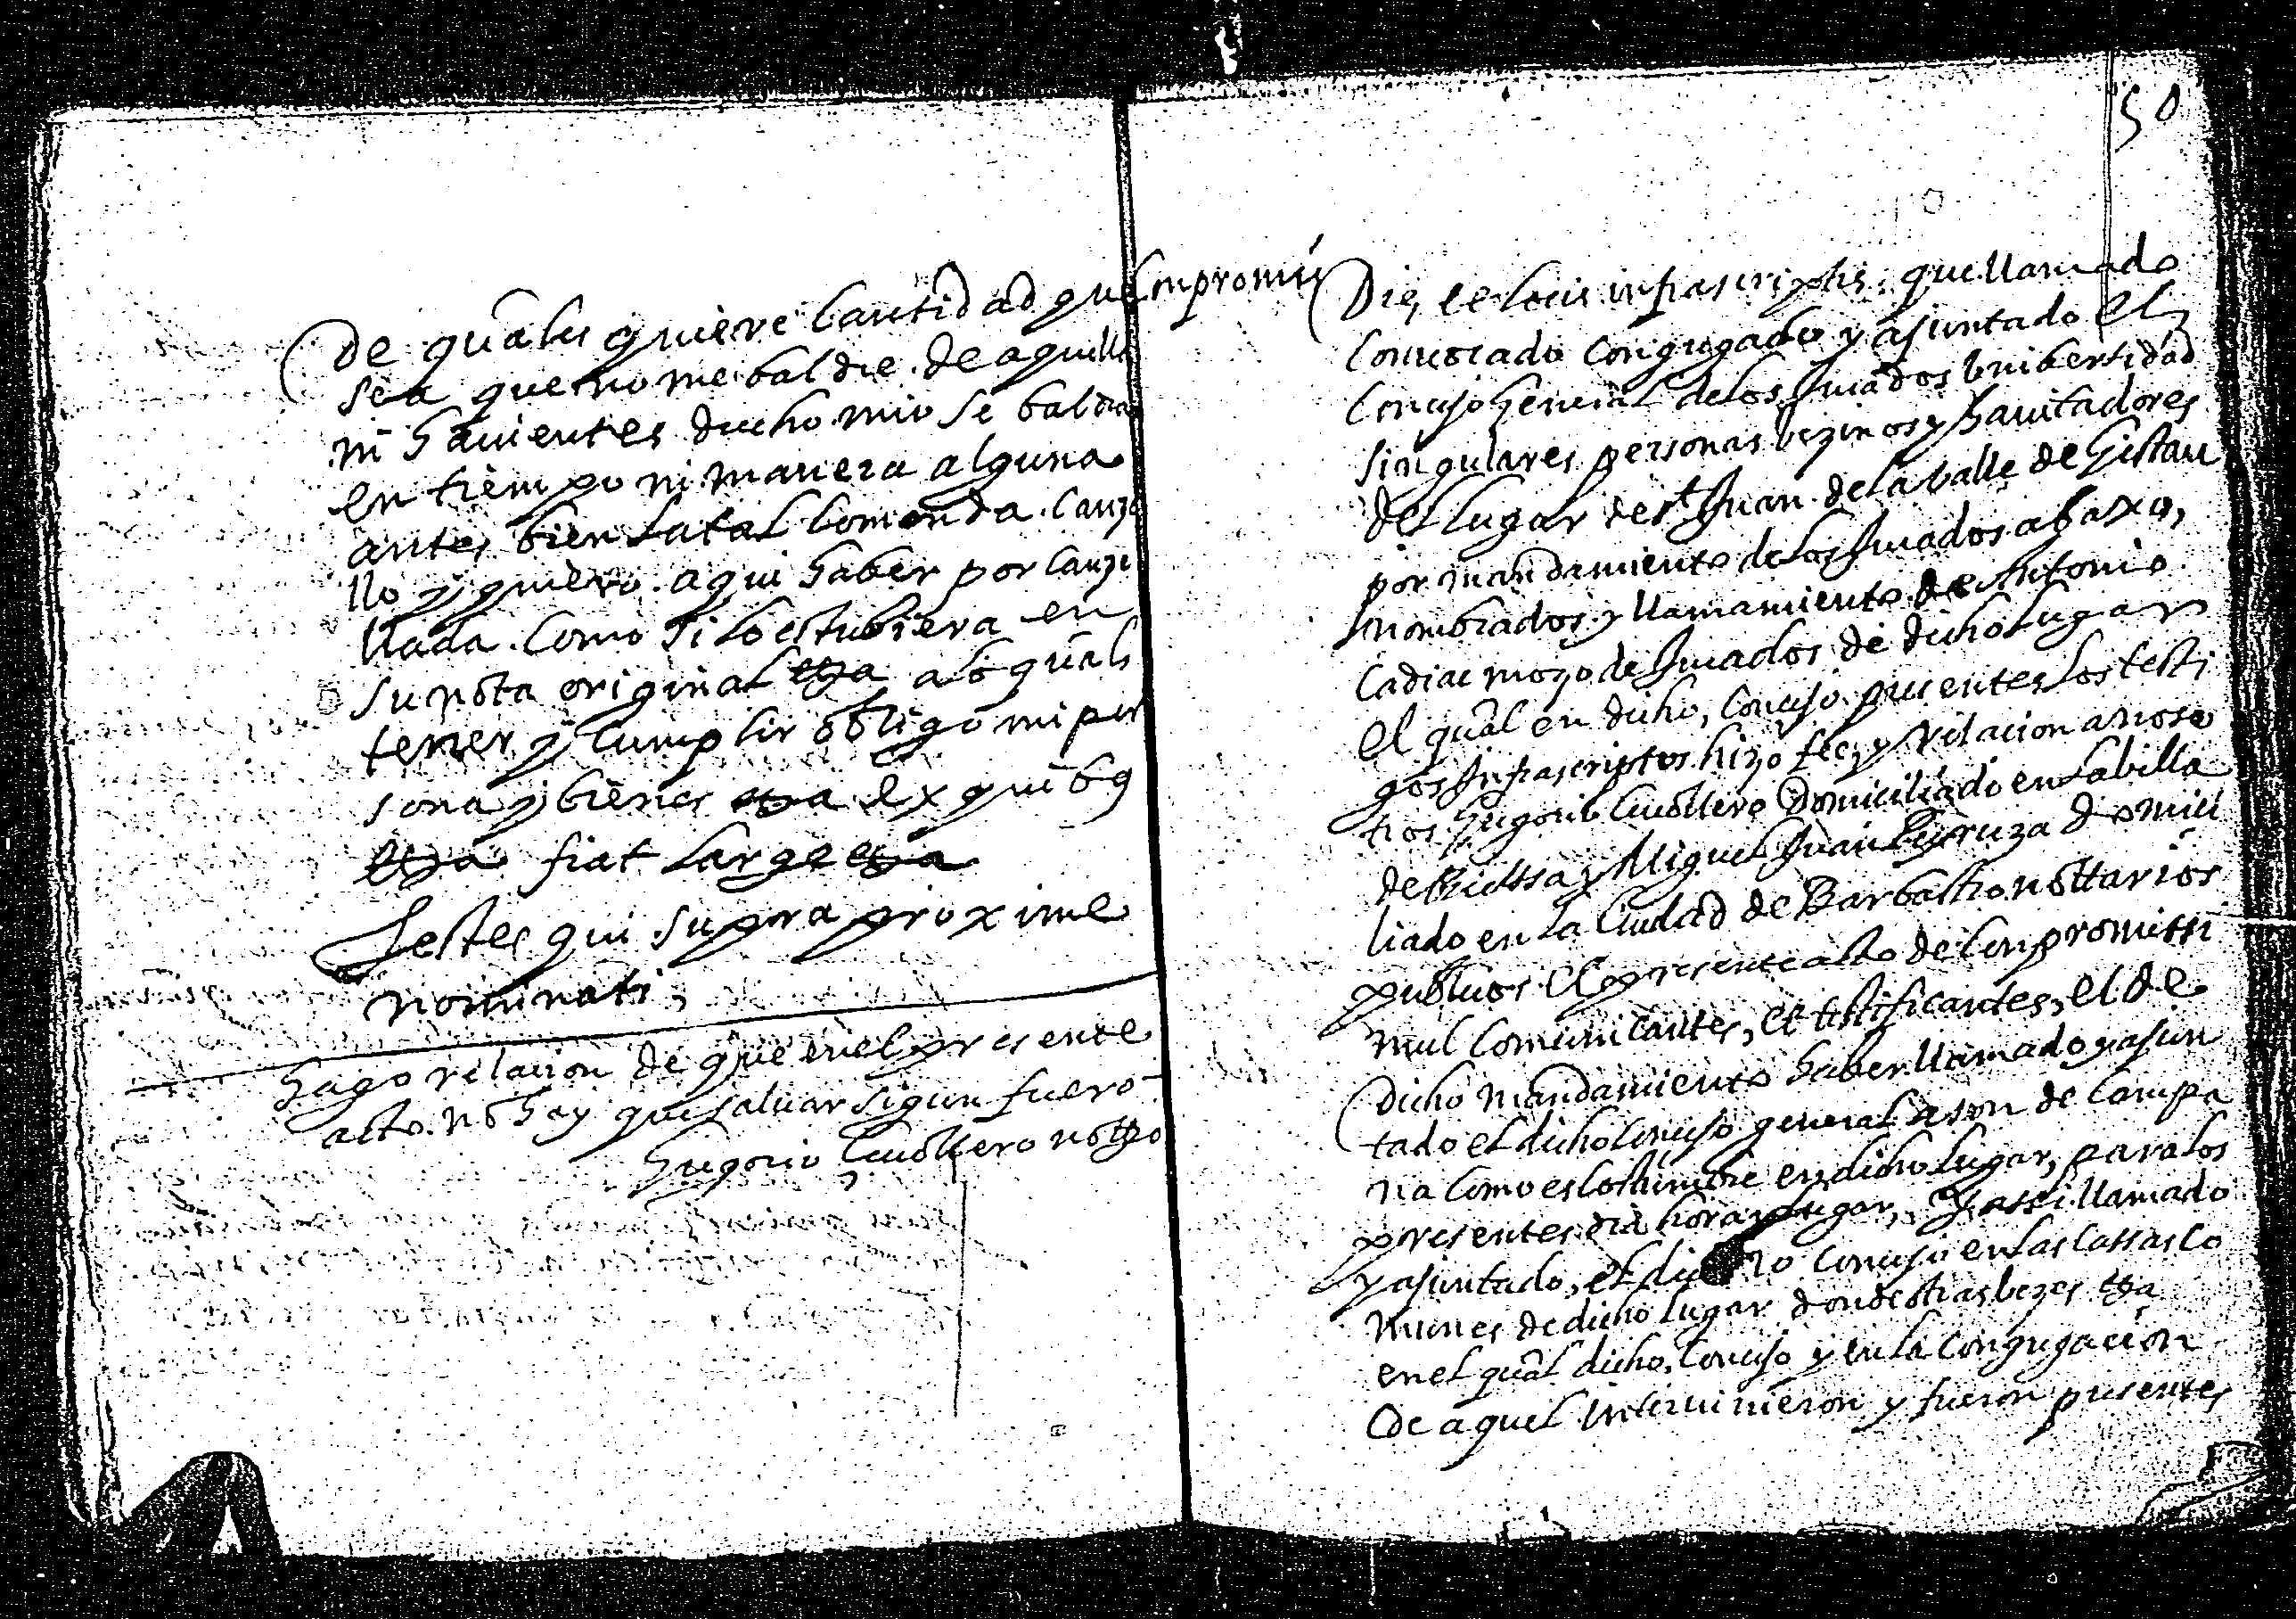 De quales quiere Cantidad que
sea que no me baldre de aquella
ni havientes drecho mio se baldran
en tiempo ni manera alguna
antes bien la tal Comanda Canze
llo y quiero aqui haber por Canze
llada Como si lo estubiera en
su nota original etta a lo qual
tener y Cumplir obligo mi per
sona y bienes etta ex quibq
etta fiat large etta
Testes qui supra proxime
nominati
Hago relacion de que en el presente
acto no hay que salvar sigun fuero
Gregorio notto
50
Compromis
Die, et locis infrascriptis, que llamado
Convocado Congregado y ajuntado el
Concejo General de los Jurados Unibersidad
singulares personas bezinos y havitadores
del lugar de St Juan de la balle de Gistau
por mandamiento de los Jurados abaxo,
nombrados y llamamiento de Antonio
Cadiac mozo de Jurados de dicho lugar
el qual en dicho, Concejo presentes los testi
gos Infrascriptos hizo fee, y relacion a noso
tros Gregorio domiciliado en la billa
de Bielssa y Miguel Juan domici
liado en la Ciudad de Barbastro nottarios
publicos el presente acto de Compromissi
mul Comunicantes, et testificantes, el de
dicho mandamiento haber llamado y ajun
tado el dicho Concejo general a son de Campa
na Como es Costumbre en dicho lugar, para los
presentes dia hora y lugar, Y assi llamado
y ajuntado, el dicho Concejo en las Cassas Co
munes de dicho lugar donde otras bezes etta
en el qual dicho, Concejo y en la Congregacion
de aquel intervinieron y fueron presentes